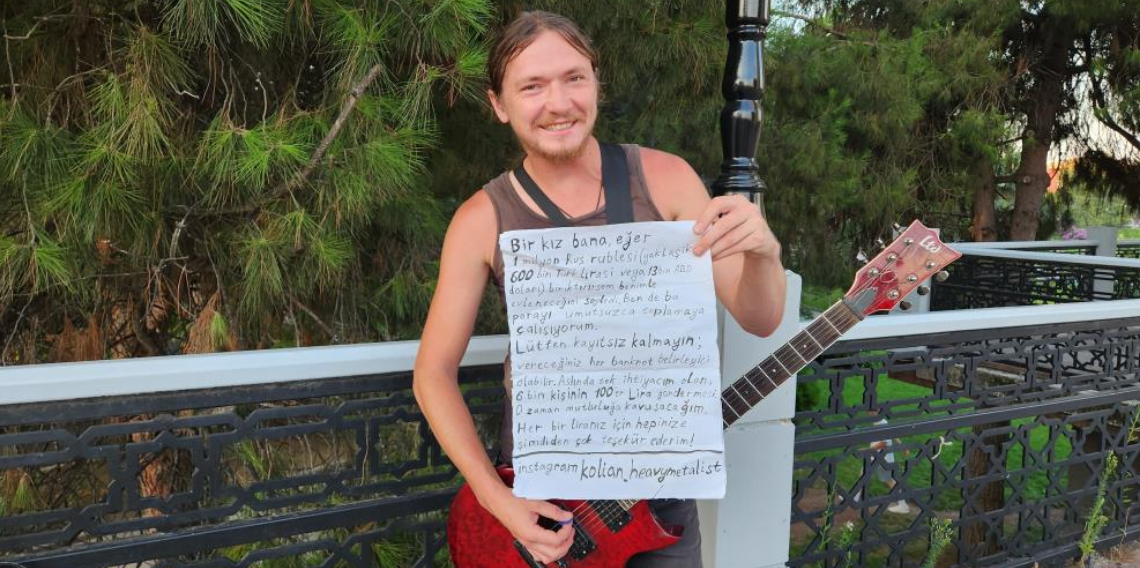 Bir kız bana, eğer
1 milyon Rus rublesi (yaklaşık
600 bin Türk lirası veya 13 bin ABD
doları) biriktirirsem benimle
evleneceğini söyledi. Ben de bu
parayı umutsuzca toplamaya
çalışıyorum.
Lütfen kayıtsız kalmayın;
vereceğiniz her banknot belirleyici
olabilir. Aslında tek ihtiyacım olan,
6 bin kişinin 100er Lira göndermesi.
O zaman mutluluğa kavuşacağım.
Her bir liranız için hepinize
şimdiden çok teşekür ederim!
instagram kolian_heavymetalist
LTD